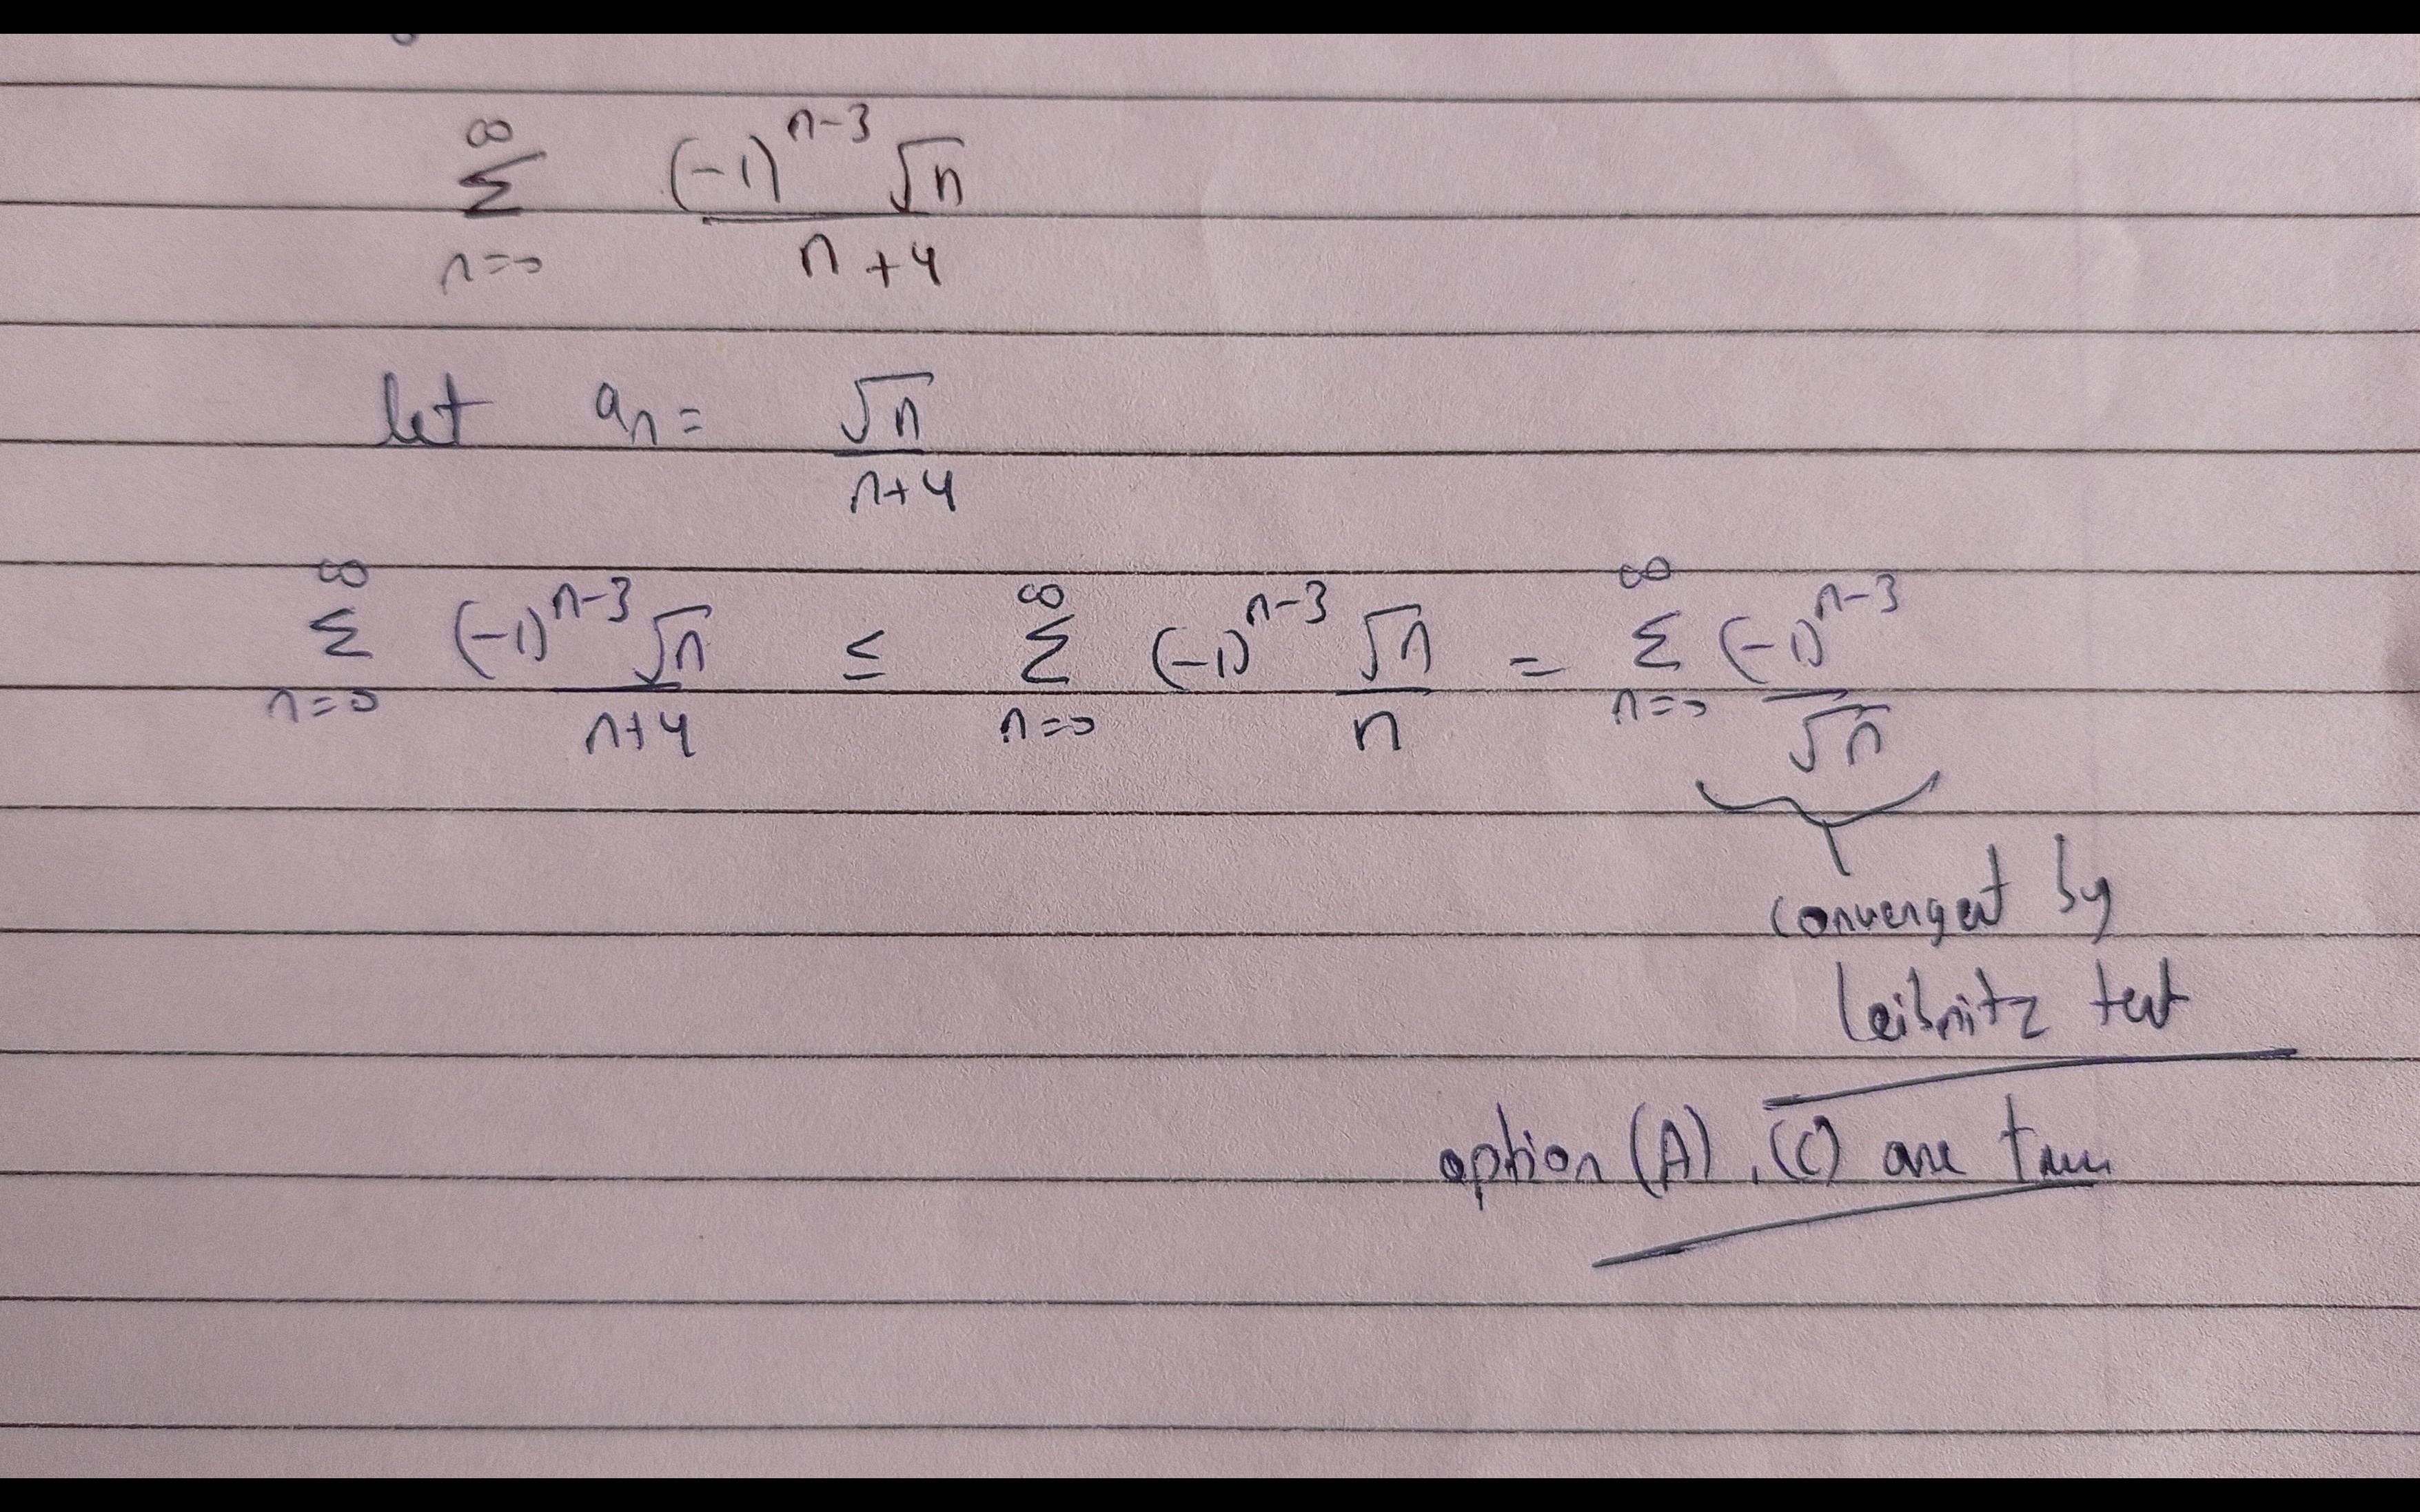 ∞
Σ (-1)^{n-3} √n / n+4
n=0
let a_n = √n / n+4
∞ ∞ ∞
Σ (-1)^{n-3} √n / n+4 ≤ Σ (-1)^{n-3} √n / n = Σ (-1)^{n-3} / √n
n=0 n=0 n=0
convergent by
leibnitz test
option (A), (C) are true